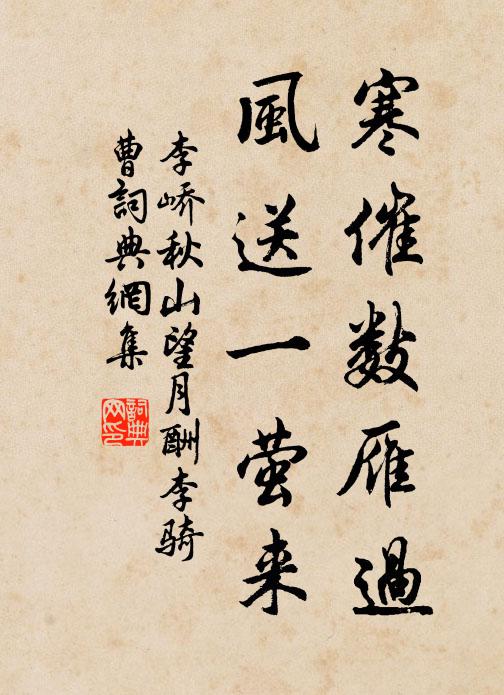 寒催数雁過
風送一萤来
李峤秋山望月酬李骑
曹詞典網集
詞典
网印